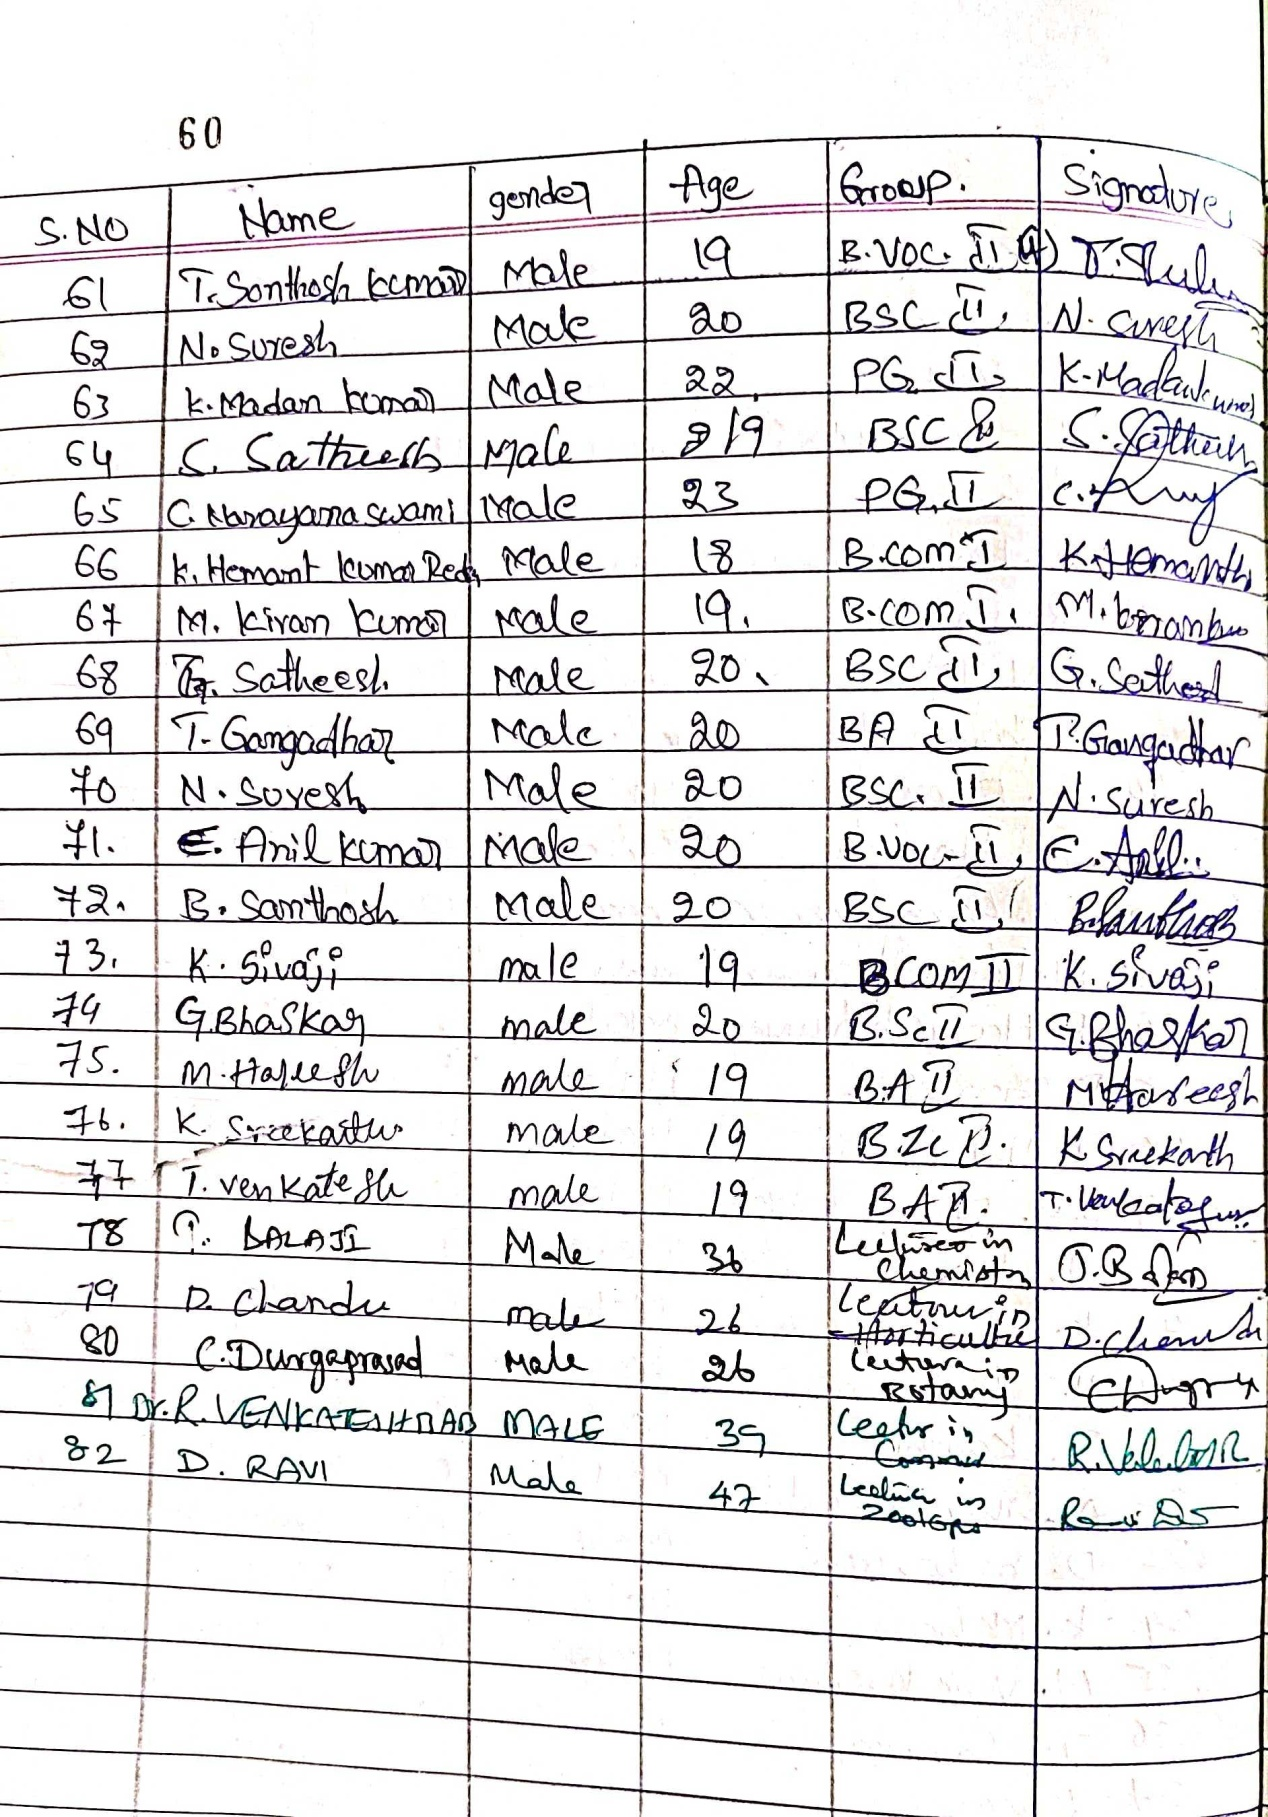 60
S.NO Name gender Age Group. Signature
61 T. Santhosh kumar Male 19 B.VOC. II (A)
62 N. Suresh Male 20 BSC II. N. Suresh
63 K. Madan kumar Male 22. PG. II. K. Madankumar
64 S. Satheesh Male 19 BSC S. Satheesh
65 C. Narayanaswami Male 23 PG. II C.
66 K. Hemant kumar Reddy Male 18 B.com I K. Hemanth
67 M. Kiran kumar Male 19. B.com I. M.
68 G. Satheesh Male 20. BSC II, G. Satheesh
69 T. Gangadhar Male 20 BA II T. Gangadhar
70 N. Suresh Male 20 BSC. II N. Suresh
71. E. Anil kumar Male 20 B.VOC. II, E. Anil
72. B. Santhosh Male 20 BSC II, B. Santhosh
73. K. Sivaji male 19 BCOM II K. Sivaji
74 G. Bhaskar male 20 B.Sc II G. Bhaskar
75. M. Hareesh male 19 B.A II M Hareesh
76. K. Sreekanth male 19 B.Zc II. K Sreekanth
77 T. Venkatesh male 19 B.A II. T. Venkatesh
78 BALAJI Male 36 Lecturer in Chemistry
79 D. Chandu male 26 Lecturer in Horticulture D. Chandu
80 C. Durgaprasad Male 26 Lecturer in Botany
81 Dr. R. VENKATESHRAO MALE 39 Lectur in Commerce
82 D. RAVI Male 47 Lecturer in Zoology